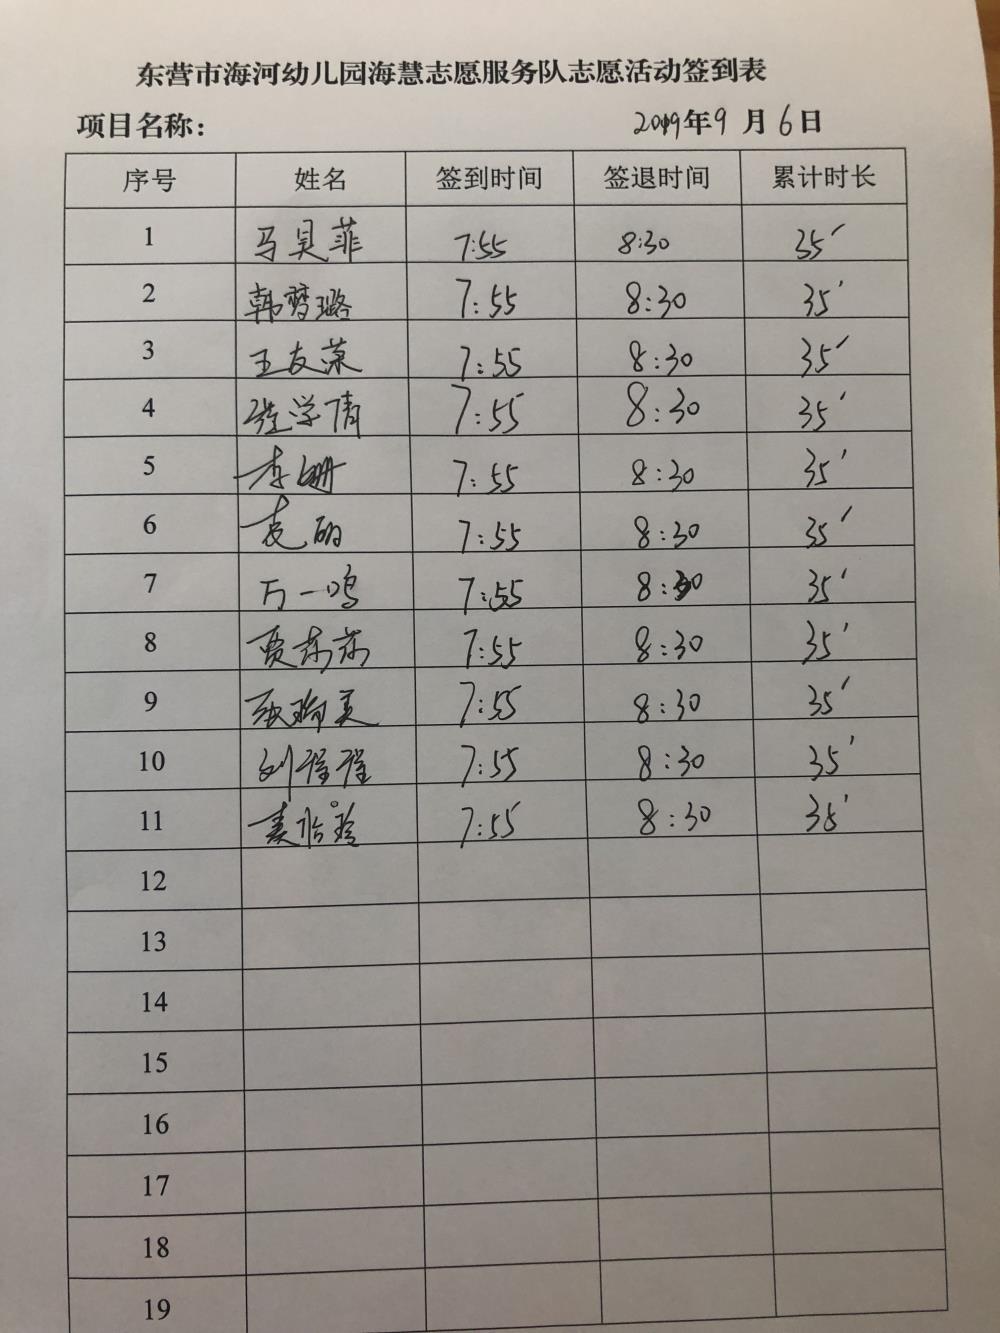 东营市海河幼儿园海慧志愿服务队志愿活动签到表
项目名称： 2019年9月6日
序号 姓名 签到时间 签退时间 累计时长
1 马昊菲 7:55 8:30 35′
2 韩梦璐 7:55 8:30 35′
3 王友荣 7:55 8:30 35′
4 张学倩 7:55 8:30 35′
5 李姗 7:55 8:30 35′
6 袁丽 7:55 8:30 35′
7 万一鸣 7:55 8:30 35′
8 贾莎莎 7:55 8:30 35′
9 7:55 8:30 35′
10 刘程程 7:55 8:30 35′
11 7:55 8:30 35′
12
13
14
15
16
17
18
19